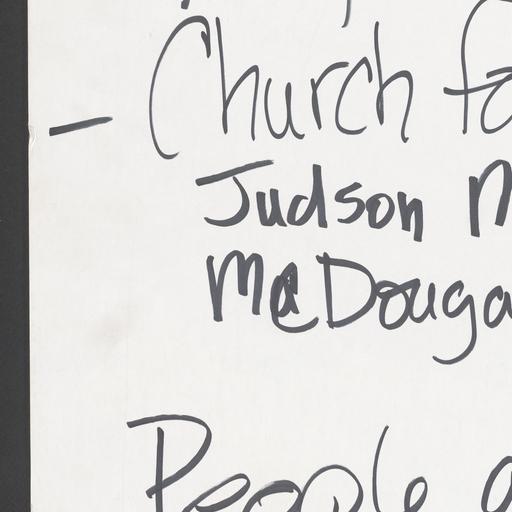 - Church fo
Judson M
McDouga
People a